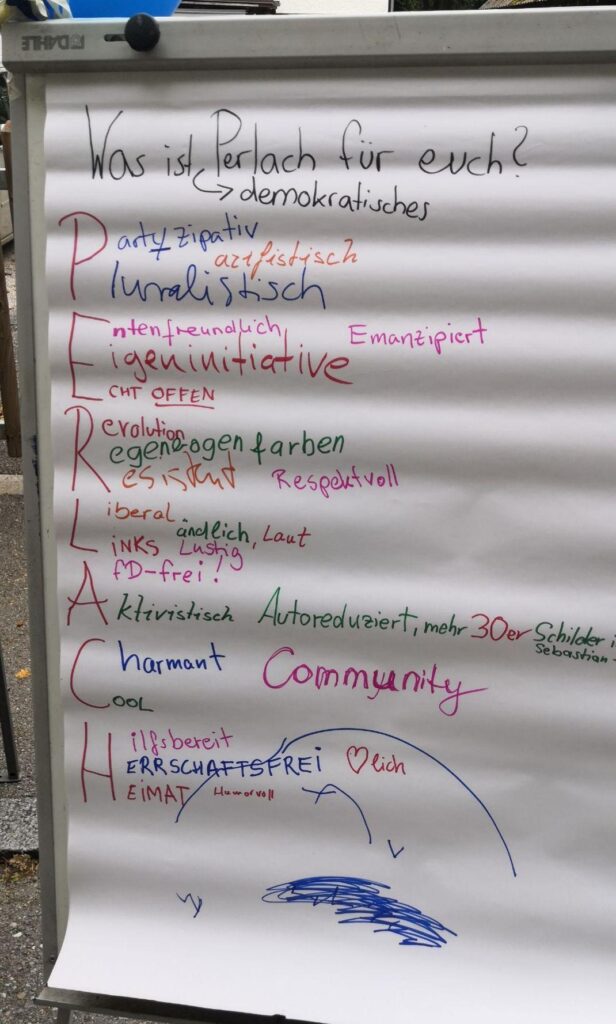 DAHLE
Was ist Perlach für euch?
→ demokratisches
PERLACH
Partyzipativ
azifistisch
Pluralistisch
Entenfreundlich, Emanzipiert
Eigeninitiative
ECHT OFFEN
Revolution
Regenbogenfarben
Resistent Respektvoll
Liberal
ändlich, Laut
LiNKS Lustig
AfD-frei!
Aktivistisch Autoreduziert, mehr 30er Schilder i
Sebastian-
Charmant Community
COOL
Hilfsbereit
HERRSCHAFTSFREI ♡lich
HEIMAT Humorvoll